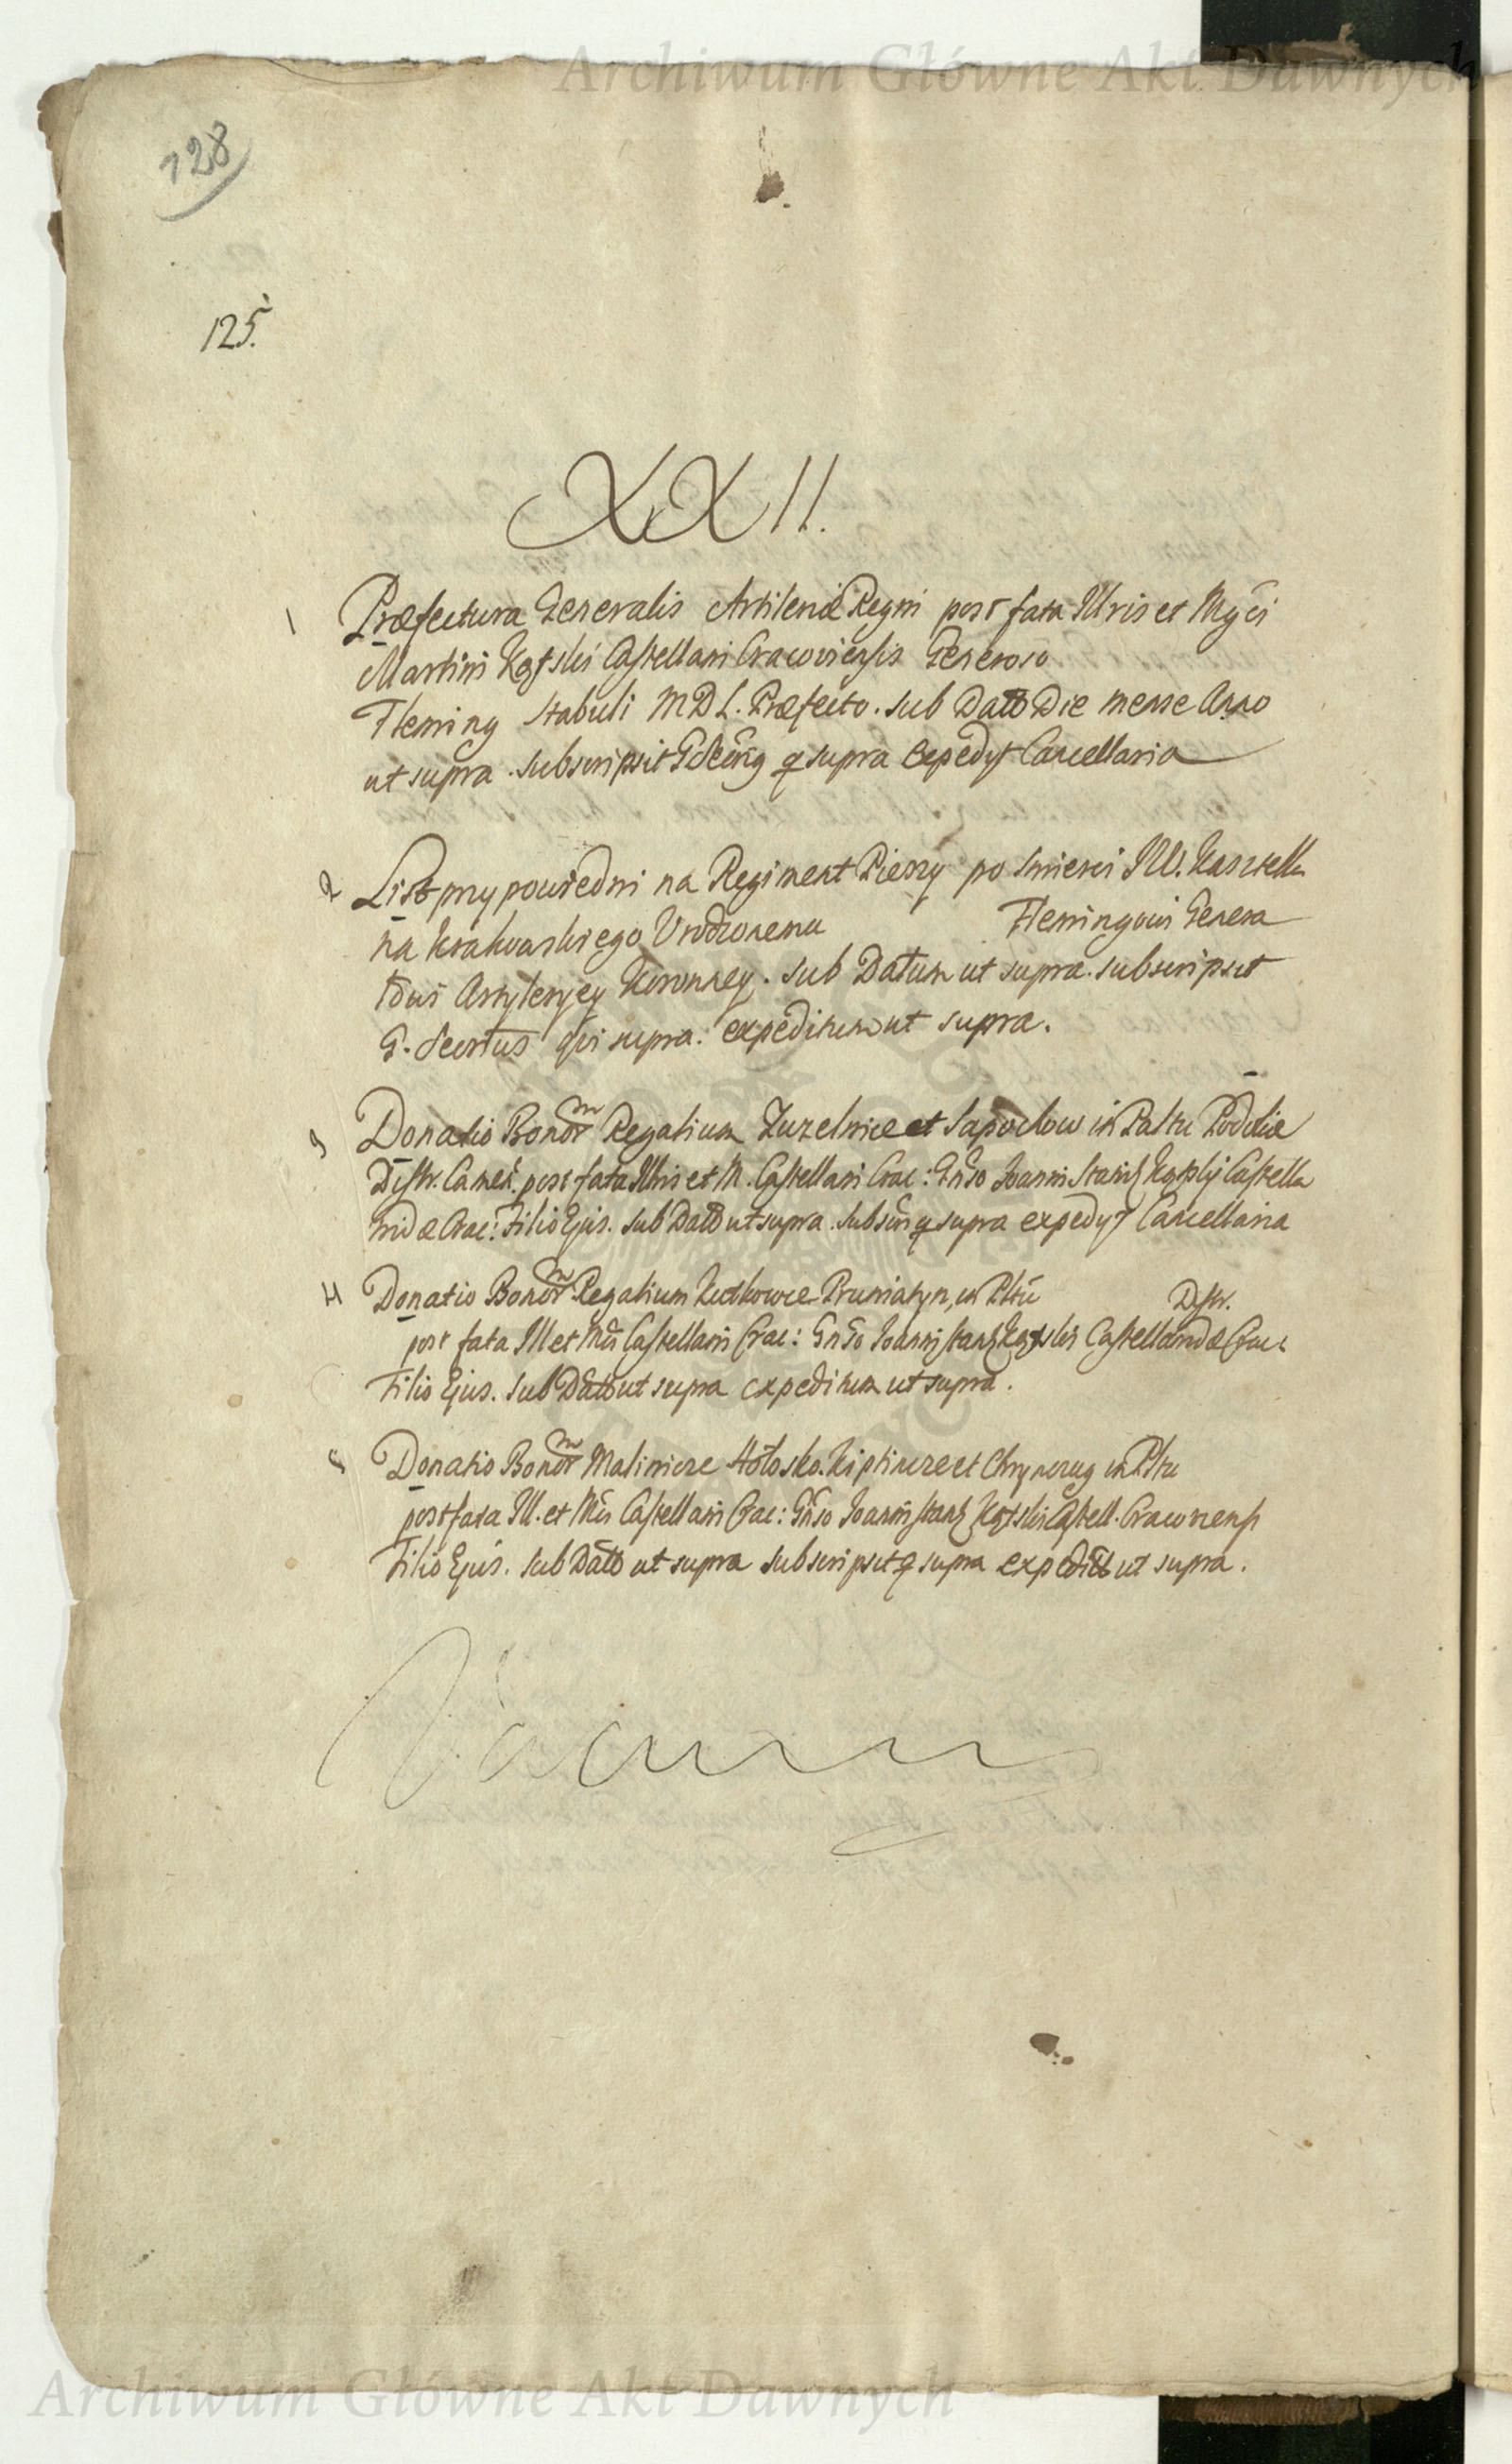 Archiwum Główne Akt Dawnych
128
125.
XXII.
1 Præfectura Generalis Artileriæ Regni post fata Illris et Mgci
Martini Kątski Castellani Cracoviensis Generoso
Fleming Stabuli MDL. Præfecto. sub Datt Die mense Anno
ut supra. subscripsit q supra Expedyt Cancellaria
2 List przypowiedni na Regiment Pieszy po smierci JW. Kasztella
na Krakowskiego Vrodzonemu Flemingowi Genera
łowi Artyleryey Koronney. sub Datum ut supra. subscripsit
G. Secrtus qui supra. expeditum ut supra.
3 Donatio Bonorm Regalium Zuzelnice et Sapochow in Paltu Podoliæ
Distr. Camen. post fata Illris et M. Castellani Crac: Gnso Joanni Stanis Kątskij Castella
nidæ Crac: Filio Ejus. sub Datt ut supra. subscri q supra expedyt Cancellaria
4 Donatio Bonorm Regalium Pruniatyn, in Pltu Distr.
post fata Ill et Mci Castellani Crac: Gnso Joanni Stanis Kątski Castellanidæ Crac:
Filio Ejus. sub Datt ut supra expeditum ut supra.
5 Donatio Bonorm Malinicze Hołosko. et in Pltu
post fata Ill. et Mci Castellani Crac: Gnso Joanni Stanis Kątski Castell. Cracoviens
Filio Ejus. sub Datt ut supra subscripsit q supra expeditt ut supra.
Vacuum
Archiwum Główne Akt Dawnych